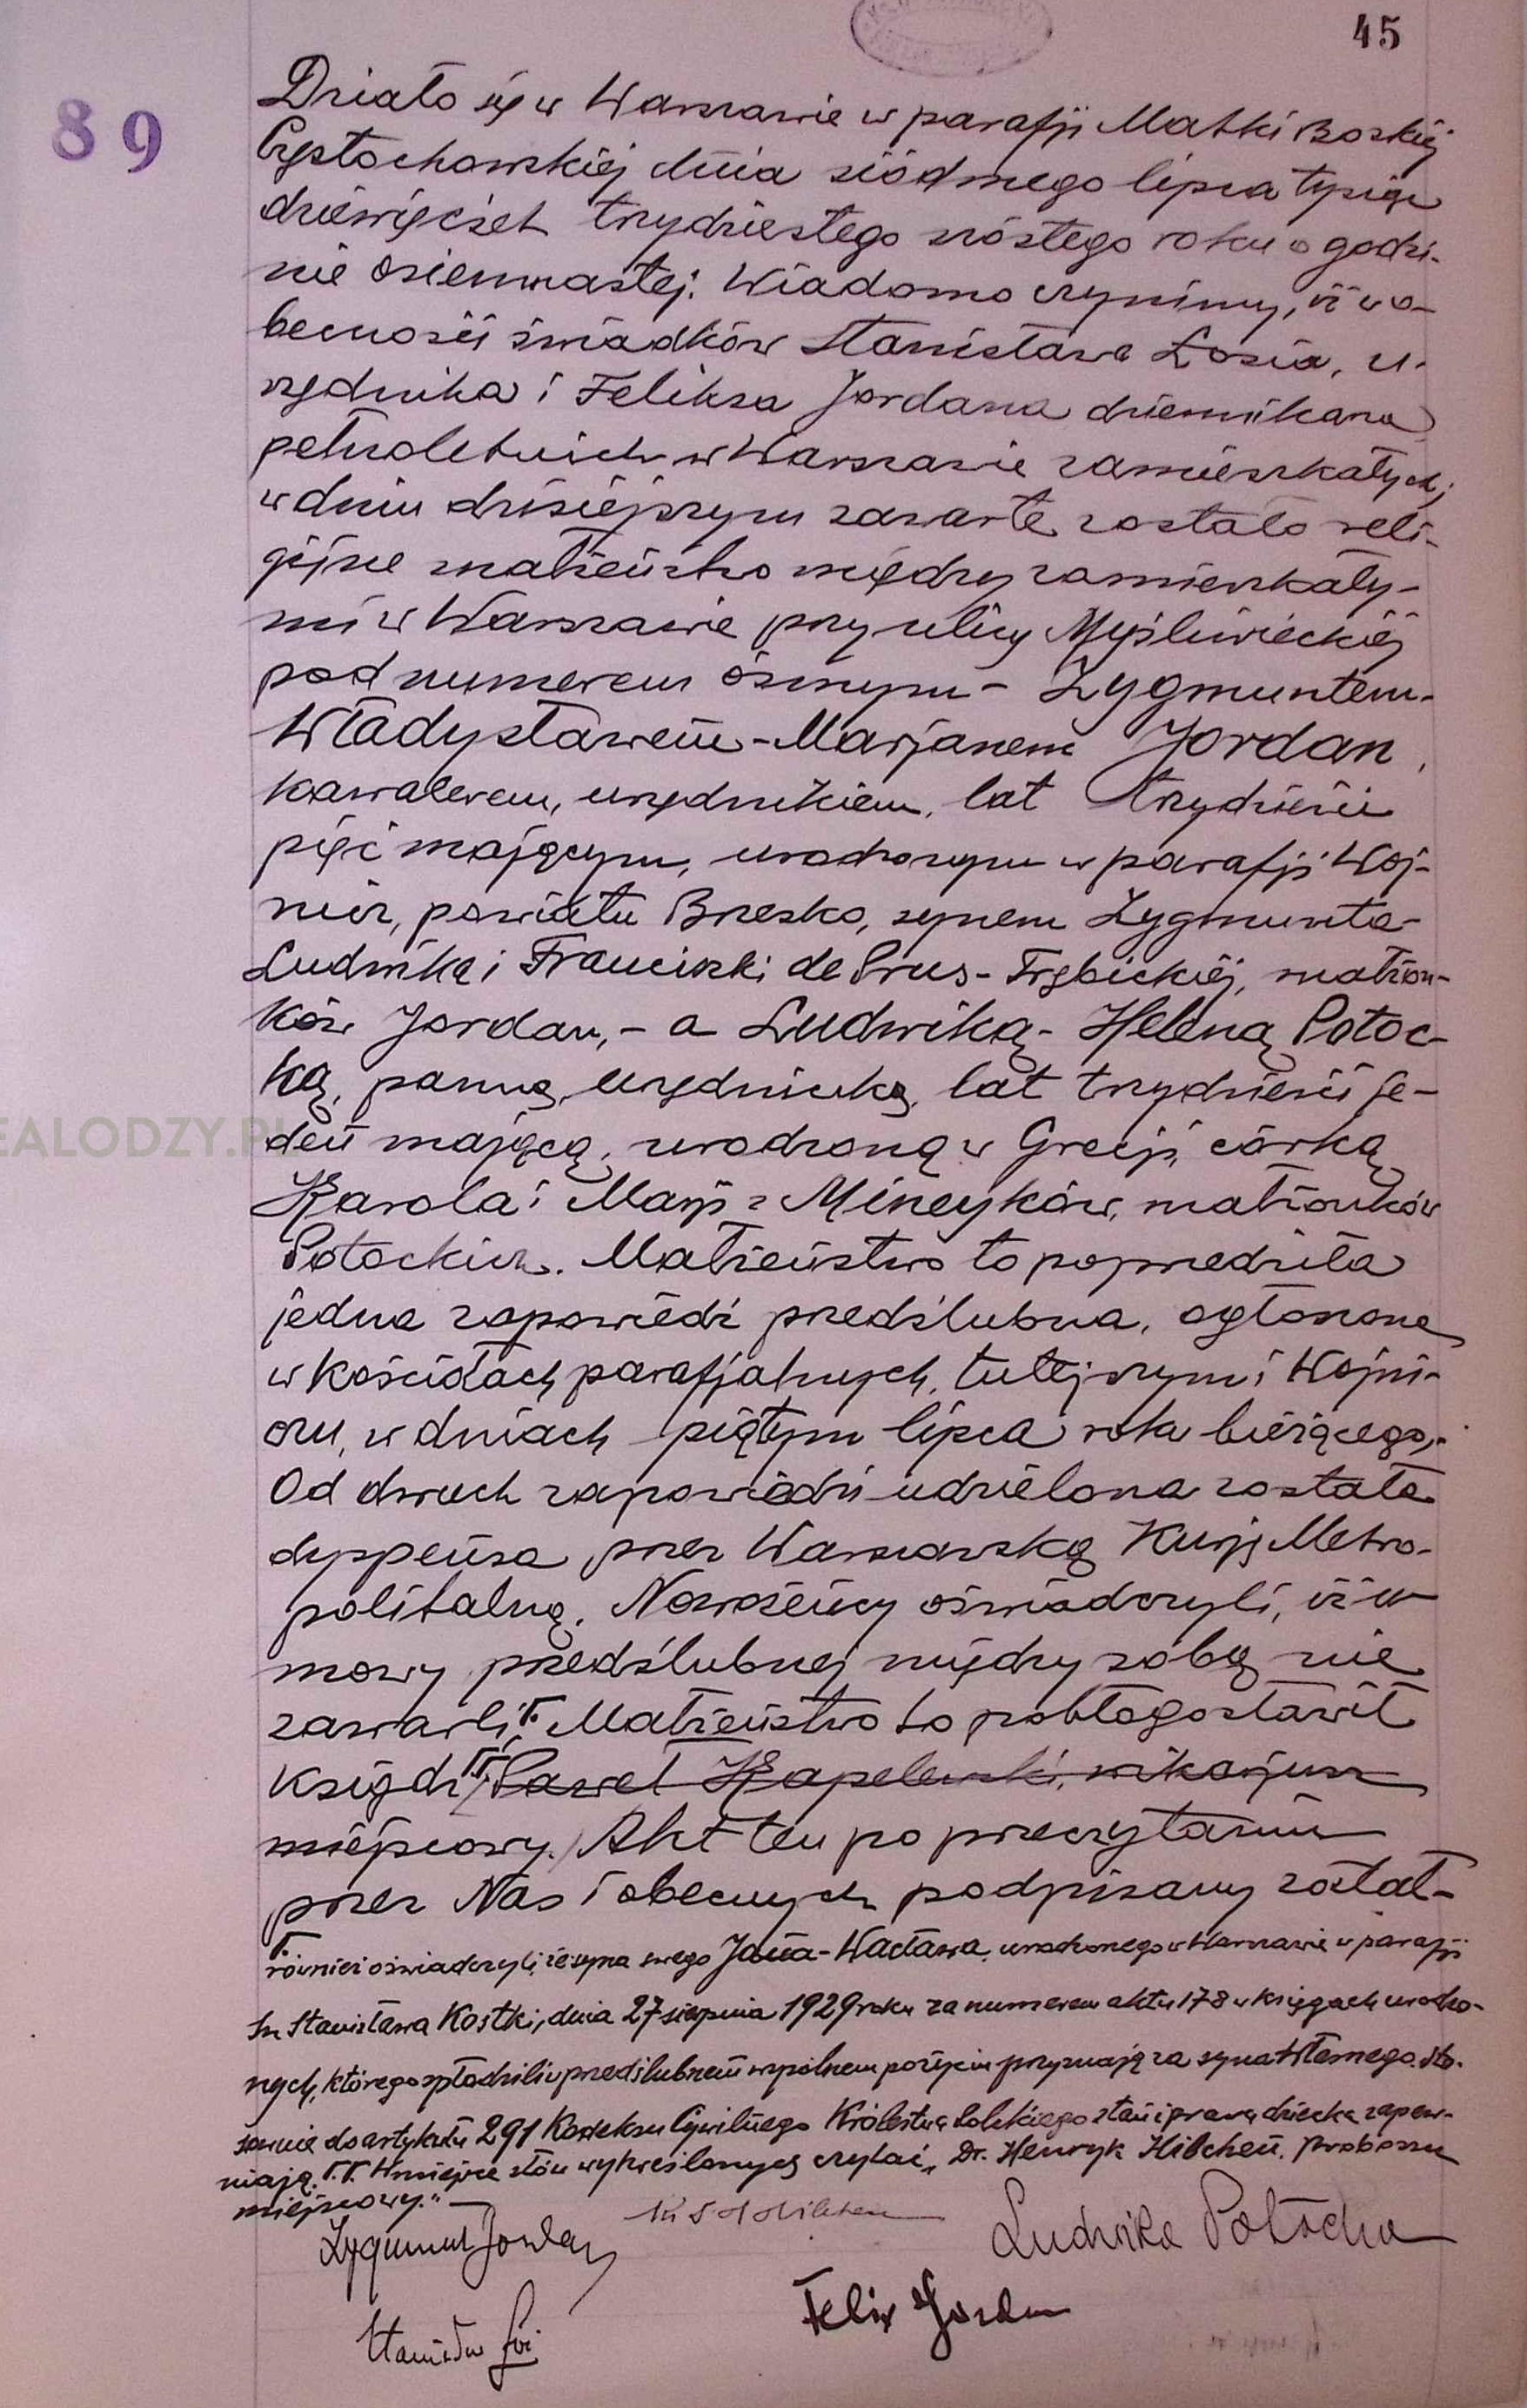 45
89
Działo się w Warszawie w parafji Matki Boskiej
Częstochowskiej dnia siódmego lipca tysiąc
dziewięćset trzydziestego szóstego roku o godzi-
nie osiemnastej. Wiadomo czynimy, iż w o-
becności świadków Stanisława Łosia, u-
rzędnika i Feliksa Jordana dziennikarza
pełnoletnich w Warszawie zamieszkałych,
w dniu dzisiejszym zawarte zostało reli-
gijne małżeństwo między zamieszkały-
mi w Warszawie przy ulicy Myśliwieckiej
pod numerem ósmym - Zygmuntem-
Władysławem-Marjanem Jordan,
kawalerem, urzędnikiem, lat trzydzieści
pięć mającym, urodzonym w parafji Woj-
nicz, powiatu Brzesko, synem Zygmunta-
Ludwika i Franciszki de Prus-Trębickiej, małżon-
ków Jordan, - a Ludwiką-Heleną Potoc-
ką, panną, urzędniczką, lat trzydzieści je-
den mającą, urodzoną w Grecji, córką
Karola i Marji z Mineyków, małżonków
Potockich. Małżeństwo to poprzedziła
jedna zapowiedź przedślubna, ogłoszona
w kościołach parafjalnych, tutejszym i Wojni-
czu, w dniach piątym lipca roku bieżącego,-
Od dwuch zapowiedzi udzielona została
dyspensa przez Warszawską Kurję Metro-
politalną. Nowożeńcy oświadczyli, iż u-
mowy przedślubnej między sobą nie
zawarli. Małżeństwo to pobłogosławił
ksiądz Paweł Kapelewski, wikarjusz
miejscowy. Akt ten po przeczytaniu
przez Nas i obecnych podpisany został-
również oświadczyli, że syna swego Jana-Wacława, urodzonego w Warszawie w parafji
Św. Stanisława Kostki, dnia 27 sierpnia 1929 roku za numerem aktu 178 w księgach urodzo-
nych, którego spłodzili w przedślubnem wspólnem pożyciu przyznają za syna własnego. Sto-
sownie do artykułu 291 Kodeksu Cywilnego Królestwa Polskiego stan i prawa dziecka zapew-
niają. W miejsce słów wykreślonych czytać „Dr. Henryk Hilchen, proboszcz
miejscowy." -
Zygmunt Jordan
Ks H Hilchen
Ludwika Potocka
Felix Jordan
Stanisław Łoś